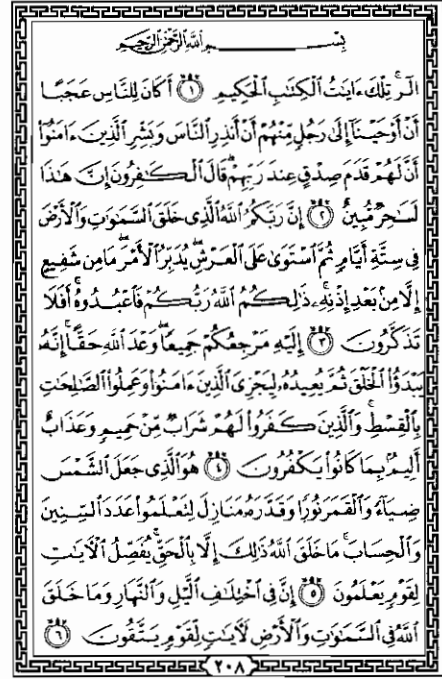 بِسْمِ اللَّهِ الرَّحْمَٰنِ الرَّحِيمِ
الٓر ۚ تِلْكَ ءَايَٰتُ ٱلْكِتَٰبِ ٱلْحَكِيمِ ١ أَكَانَ لِلنَّاسِ عَجَبًا
أَنْ أَوْحَيْنَآ إِلَىٰ رَجُلٍ مِّنْهُمْ أَنْ أَنذِرِ ٱلنَّاسَ وَبَشِّرِ ٱلَّذِينَ ءَامَنُوٓا۟
أَنَّ لَهُمْ قَدَمَ صِدْقٍ عِندَ رَبِّهِمْ ۗ قَالَ ٱلْكَٰفِرُونَ إِنَّ هَٰذَا
لَسَٰحِرٌ مُّبِينٌ ٢ إِنَّ رَبَّكُمُ ٱللَّهُ ٱلَّذِى خَلَقَ ٱلسَّمَٰوَٰتِ وَٱلْأَرْضَ
فِى سِتَّةِ أَيَّامٍ ثُمَّ ٱسْتَوَىٰ عَلَى ٱلْعَرْشِ ۖ يُدَبِّرُ ٱلْأَمْرَ ۖ مَا مِن شَفِيعٍ
إِلَّا مِنۢ بَعْدِ إِذْنِهِۦ ۚ ذَٰلِكُمُ ٱللَّهُ رَبُّكُمْ فَٱعْبُدُوهُ ۚ أَفَلَا
تَذَكَّرُونَ ٣ إِلَيْهِ مَرْجِعُكُمْ جَمِيعًا ۖ وَعْدَ ٱللَّهِ حَقًّا ۚ إِنَّهُۥ
يَبْدَؤُا۟ ٱلْخَلْقَ ثُمَّ يُعِيدُهُۥ لِيَجْزِىَ ٱلَّذِينَ ءَامَنُوا۟ وَعَمِلُوا۟ ٱلصَّٰلِحَٰتِ
بِٱلْقِسْطِ ۚ وَٱلَّذِينَ كَفَرُوا۟ لَهُمْ شَرَابٌ مِّنْ حَمِيمٍ وَعَذَابٌ
أَلِيمٌۢ بِمَا كَانُوا۟ يَكْفُرُونَ ٤ هُوَ ٱلَّذِى جَعَلَ ٱلشَّمْسَ
ضِيَآءً وَٱلْقَمَرَ نُورًا وَقَدَّرَهُۥ مَنَازِلَ لِتَعْلَمُوا۟ عَدَدَ ٱلسِّنِينَ
وَٱلْحِسَابَ ۚ مَا خَلَقَ ٱللَّهُ ذَٰلِكَ إِلَّا بِٱلْحَقِّ ۚ يُفَصِّلُ ٱلْءَايَٰتِ
لِقَوْمٍ يَعْلَمُونَ ٥ إِنَّ فِى ٱخْتِلَٰفِ ٱلَّيْلِ وَٱلنَّهَارِ وَمَا خَلَقَ
ٱللَّهُ فِى ٱلسَّمَٰوَٰتِ وَٱلْأَرْضِ لَءَايَٰتٍ لِّقَوْمٍ يَتَّقُونَ ٦
٢٠٨